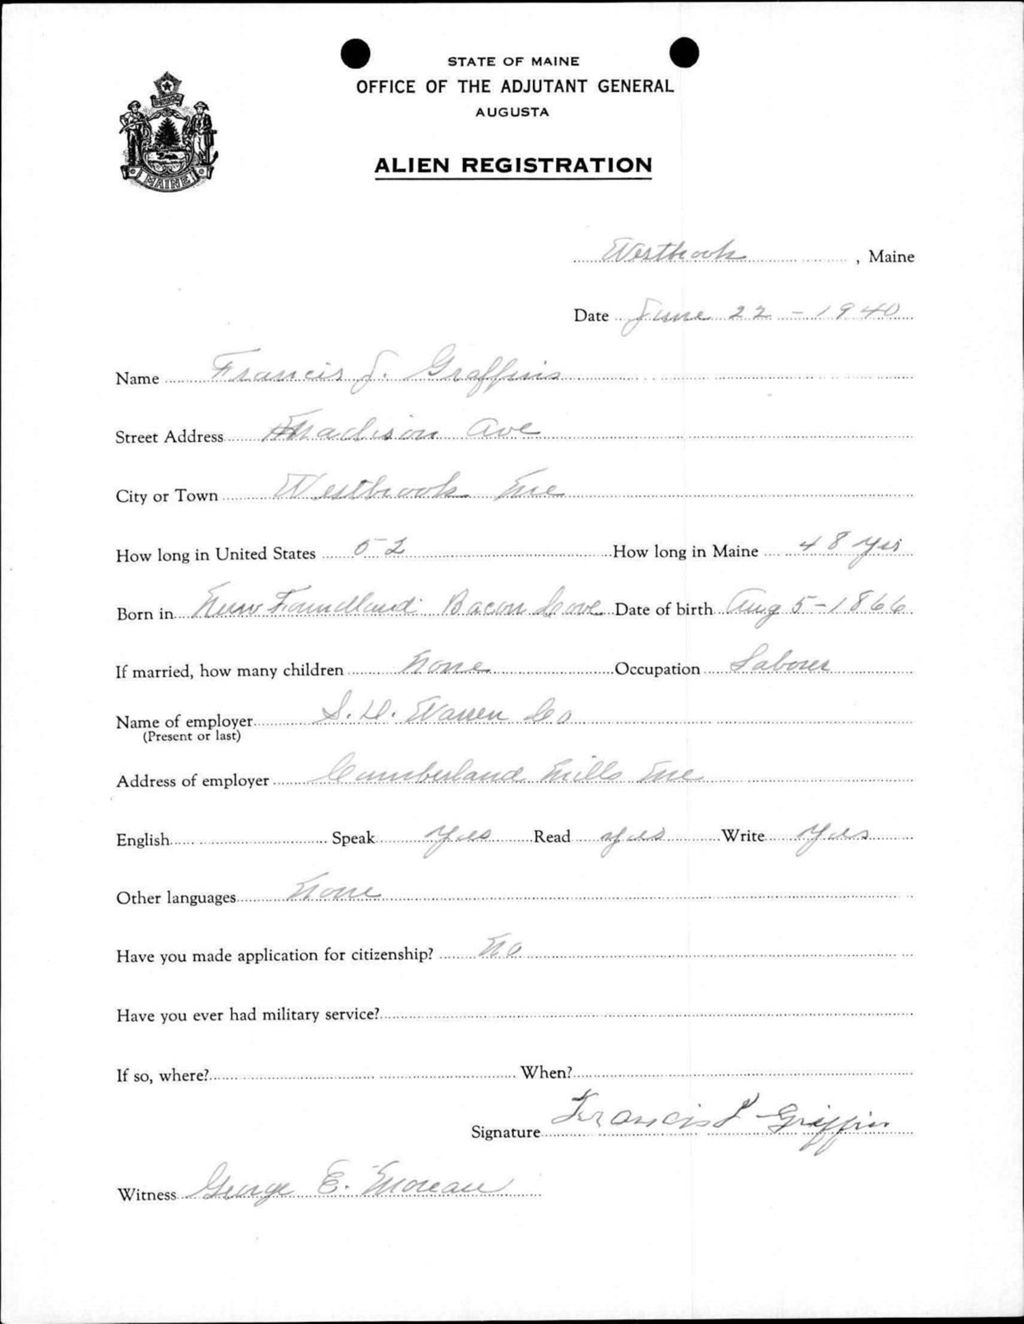 STATE OF MAINE
OFFICE OF THE ADJUTANT GENERAL
AUGUSTA
ALIEN REGISTRATION
MAINE
Westbrook, Maine
Date June 22 - 1940
Name Francis J. Graffins
Street Address Madison Ave
City or Town Westbrook Me
How long in United States 52 How long in Maine 48 yrs
Born in New Foundland Bacon Cove Date of birth Aug 5-1866
If married, how many children None Occupation Laborer
Name of employer S. D. Warren Co
(Present or last)
Address of employer Cumberland Mills Me
English Speak Yes Read yes Write Yes
Other languages None
Have you made application for citizenship? No
Have you ever had military service?
If so, where? When?
Signature Francis J Griffin
Witness George E. Moreau